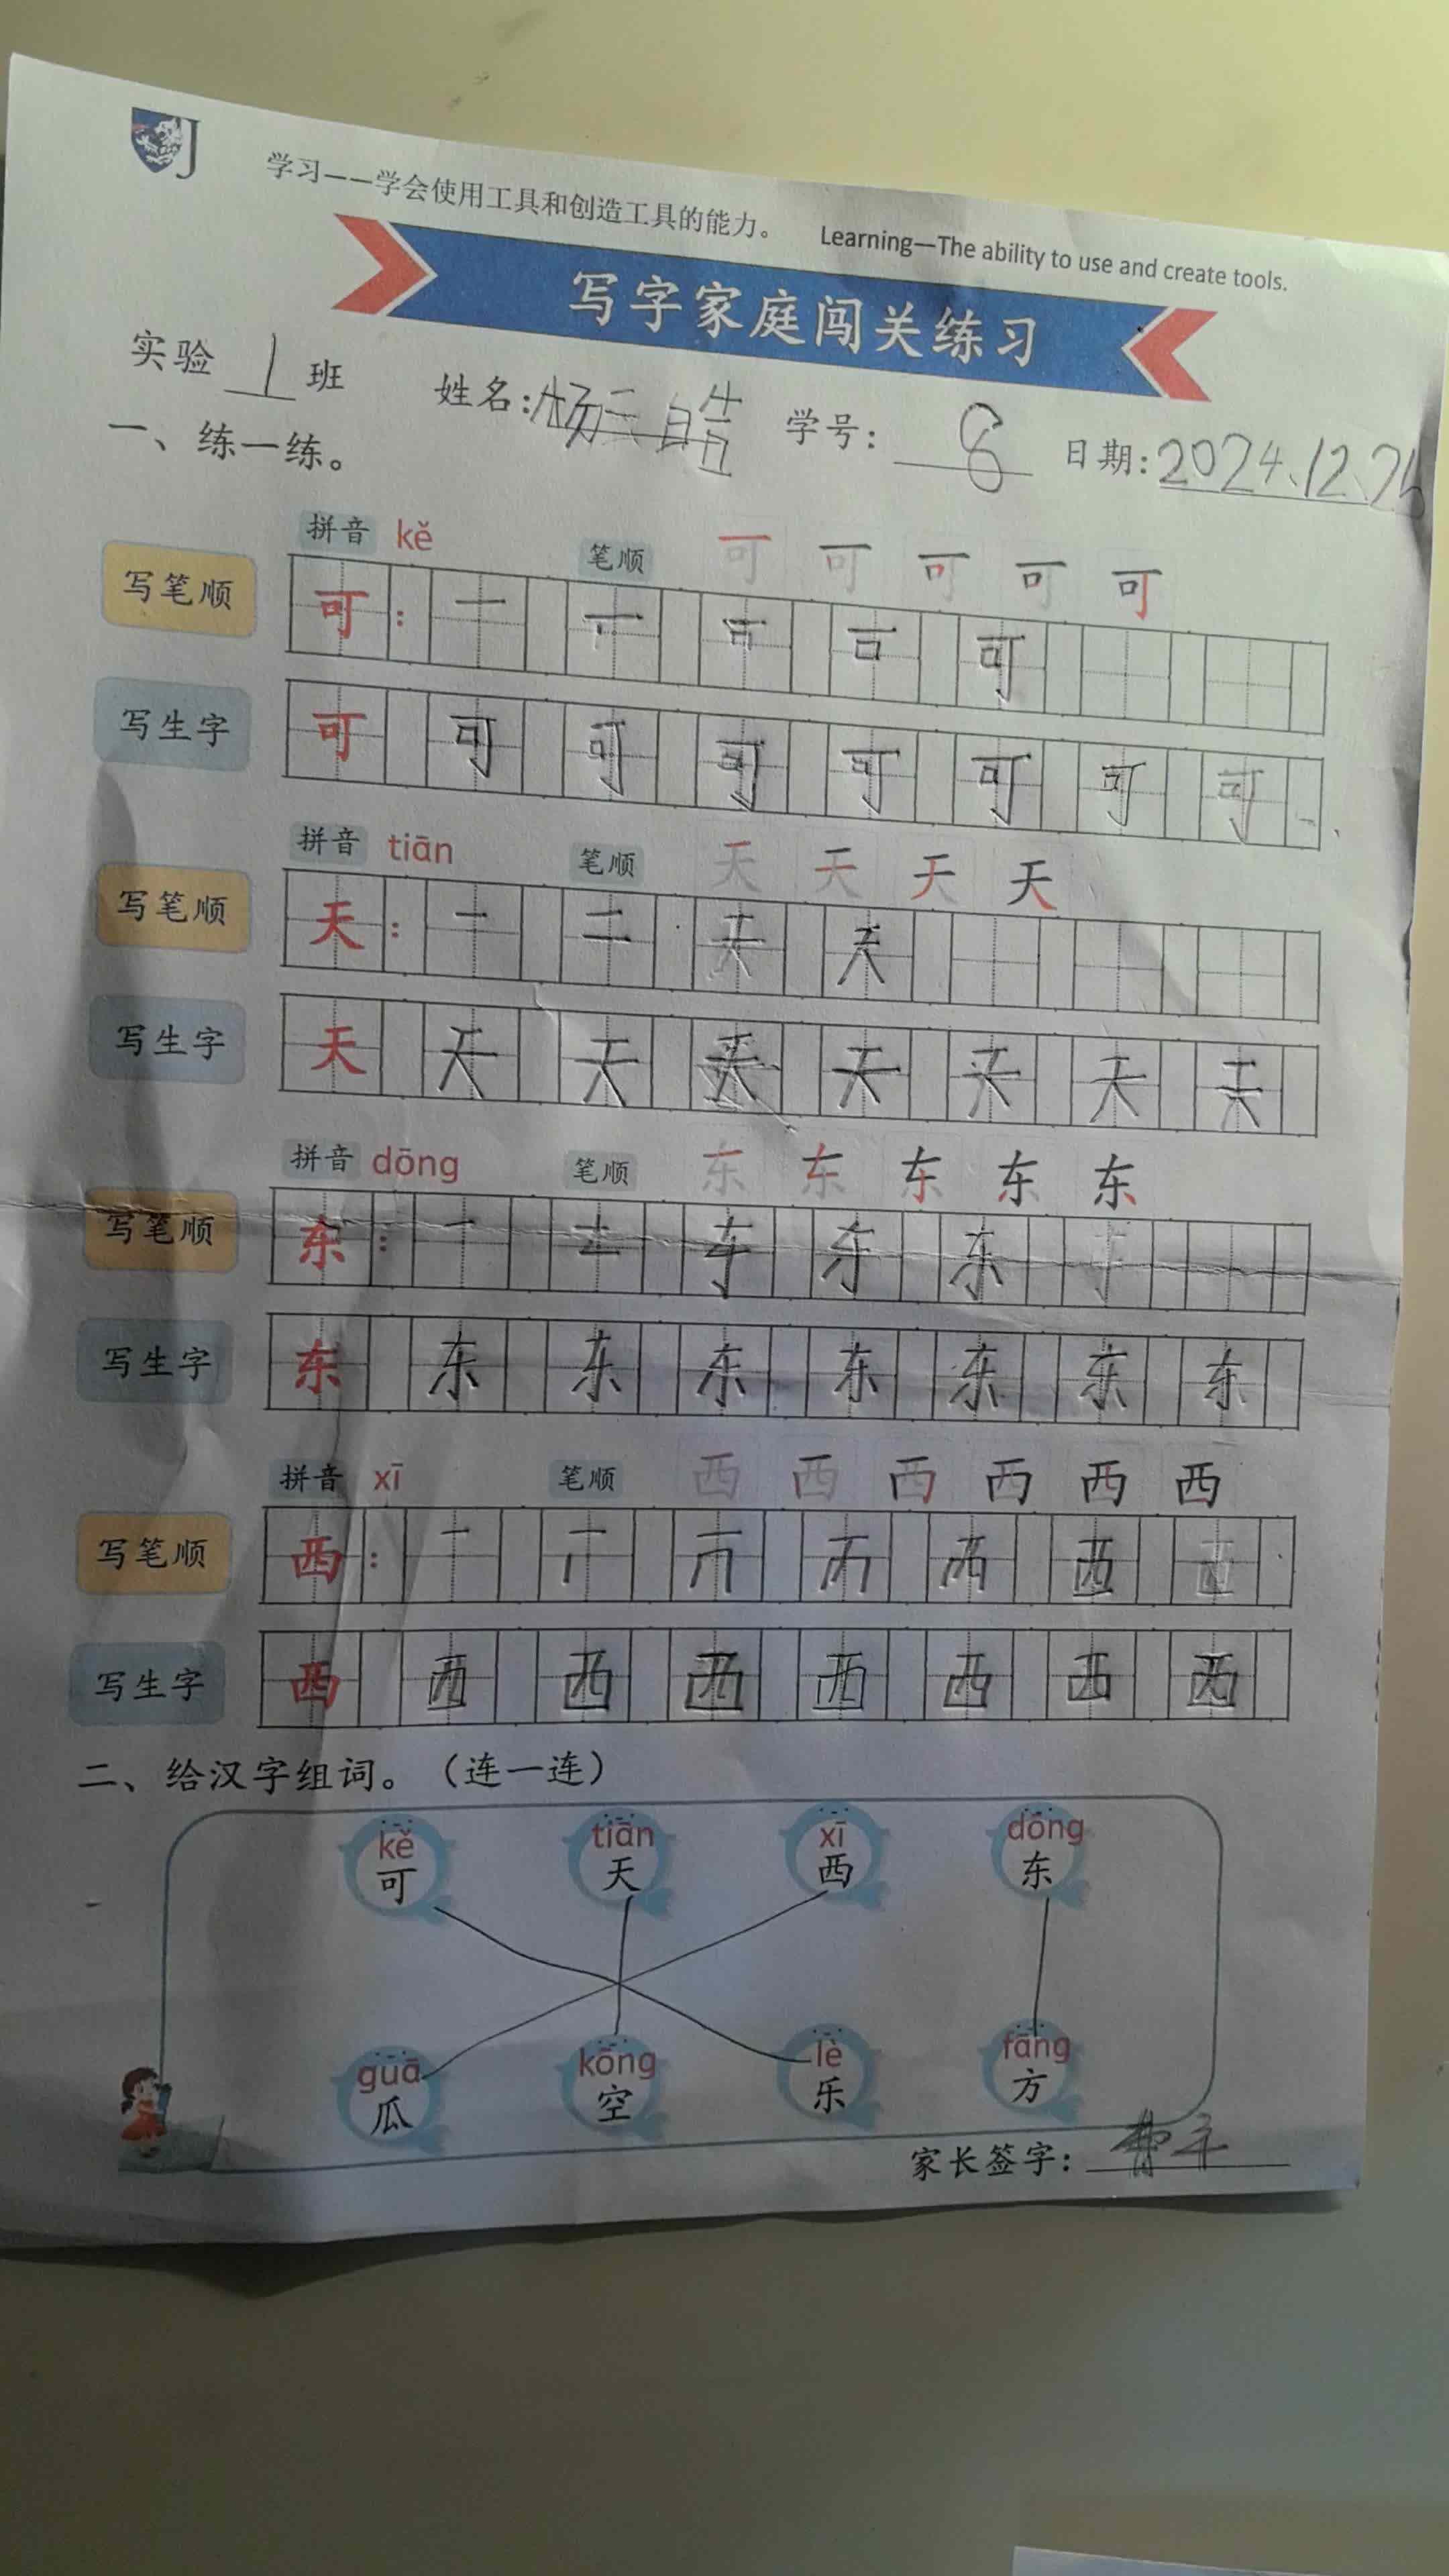 J
学习——学会使用工具和创造工具的能力。 Learning—The ability to use and create tools.
写字家庭闯关练习
实验 1 班 姓名:杨三皓 学号: 8 日期:2024.12.26
一、练一练。
拼音 kě 笔顺 可 可 可 可 可
写笔顺 可 : 一 可
写生字 可 可 可 可 可 可 可 可
拼音 tiān 笔顺 天 天 天 天
写笔顺 天 : 一 二 天 天
写生字 天 天 天 天 天 天 天 天
拼音 dōng 笔顺 东 东 东 东 东
写笔顺 东 : 一 东
写生字 东 东 东 东 东 东 东 东
拼音 xī 笔顺 西 西 西 西 西 西
写笔顺 西 : 一 西
写生字 西 西 西 西 西 西 西 西
二、给汉字组词。（连一连）
kě tiān xī dōng
可 天 西 东
guā kōng lè fāng
瓜 空 乐 方
家长签字: